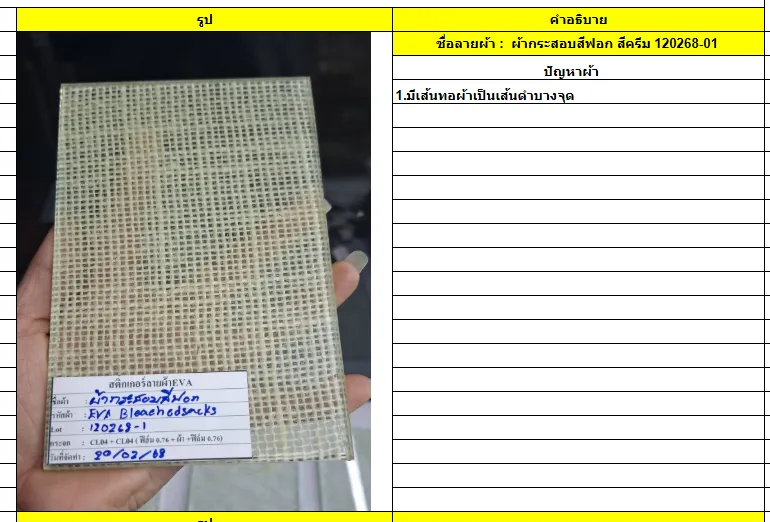 รูป
คำอธิบาย
ชื่อลายผ้า : ผ้ากระสอบสีฟอก สีครีม 120268-01
ปัญหาผ้า
1.มีเส้นทอผ้าเป็นเส้นดำบางจุด
สติกเกอร์ลายผ้าEVA
ชื่อผ้า : ผ้ากระสอบสีฟอก
รหัสผ้า : EVA Bleachedsacks
Lot : 120268-1
กระจก : CL04 + CL04 ( ฟิล์ม 0.76 + ผ้า +ฟิล์ม 0.76)
วันที่จัดทำ : 20/02/68
รูป